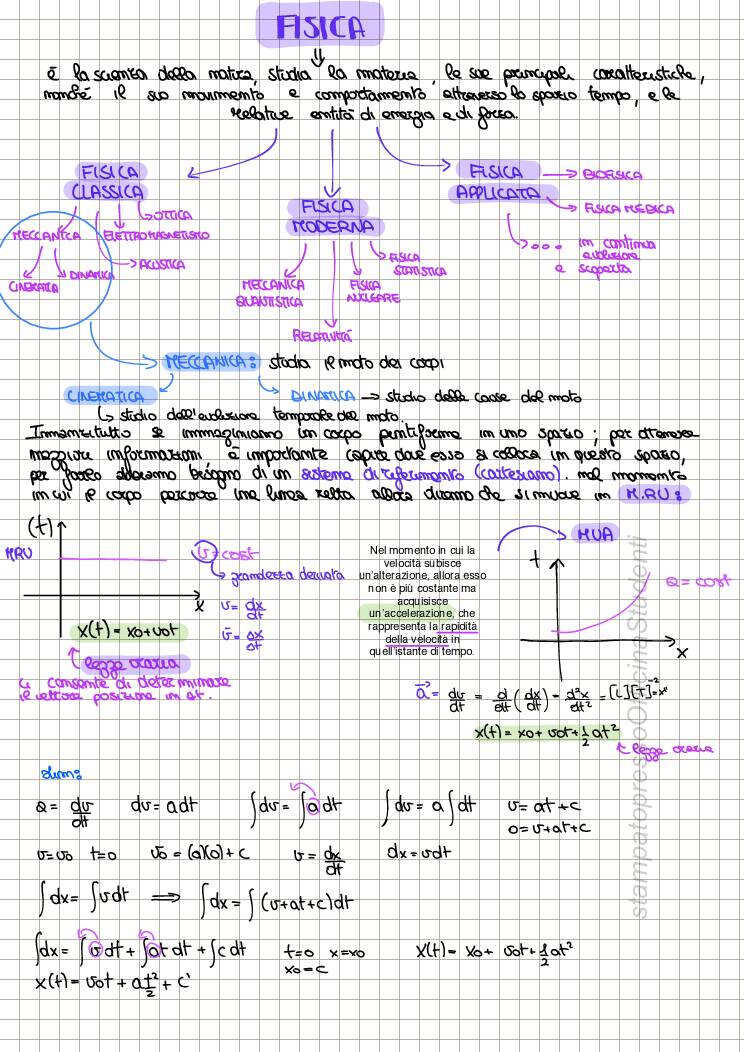 FISICA
è la scienza della natura, studia la materia, le sue principali caratteristiche,
nonché il suo movimento e comportamento attraverso lo spazio tempo, e le
relative entità di energia e di forza.
FISICA
CLASSICA
OTTICA
MECCANICA
ELETTROMAGNETISMO
ACUSTICA
DINAMICA
CINEMATICA
FISICA
MODERNA
FISICA
STATISTICA
MECCANICA
QUANTISTICA
FISICA
NUCLEARE
RELATIVITÁ
FISICA
APPLICATA
BIOFISICA
FISICA MEDICA
... in continua
evoluzione
e scoperta
MECCANICA: studia il moto dei corpi
CINEMATICA
DINAMICA → studio delle cause del moto
↳ studio dell'evoluzione temporale del moto.
Innanzitutto se immaginiamo un corpo puntiforme in uno spazio; per ottenere
maggiori informazioni è importante capire dove esso si colloca in questo spazio,
per farlo abbiamo bisogno di un sistema di riferimento (cartesiano). nel momento
in cui il corpo percorre una linea retta allora diremo che si muove in M.RU:
(t)
MRU
x
v = cost
grandezza derivata
v = dx/dt
v̄ = Δx/Δt
X(t) = xo+vot
legge oraria
↳ consente di determinare
il vettore posizione in Δt.
Nel momento in cui la
velocità subisce
un'alterazione, allora esso
non è più costante ma
acquisisce
un'accelerazione, che
rappresenta la rapidità
della velocità in
quell'istante di tempo.
MUA
t
a = cost
x
a⃗ = dv/dt = d/dt (dx/dt) = d²x/dt² = [L][T]⁻²
x(t) = xo + vot + ½ at²
legge oraria
dim:
a = dv/dt dv = adt ∫dv = ∫a dt ∫dv = a∫dt v = at + c
0 = v+at+c
v=vo t=0 vo = (a)(0) + c v = dx/dt dx = vdt
∫dx = ∫vdt ⟹ ∫dx = ∫(v+at+c)dt
∫dx = ∫v dt + ∫at dt + ∫c dt t=0 x=xo X(t) = xo + vot + ½at²
xo = c
x(t) = vot + at²/2 + c'
stampatopressoOfficinaStudenti